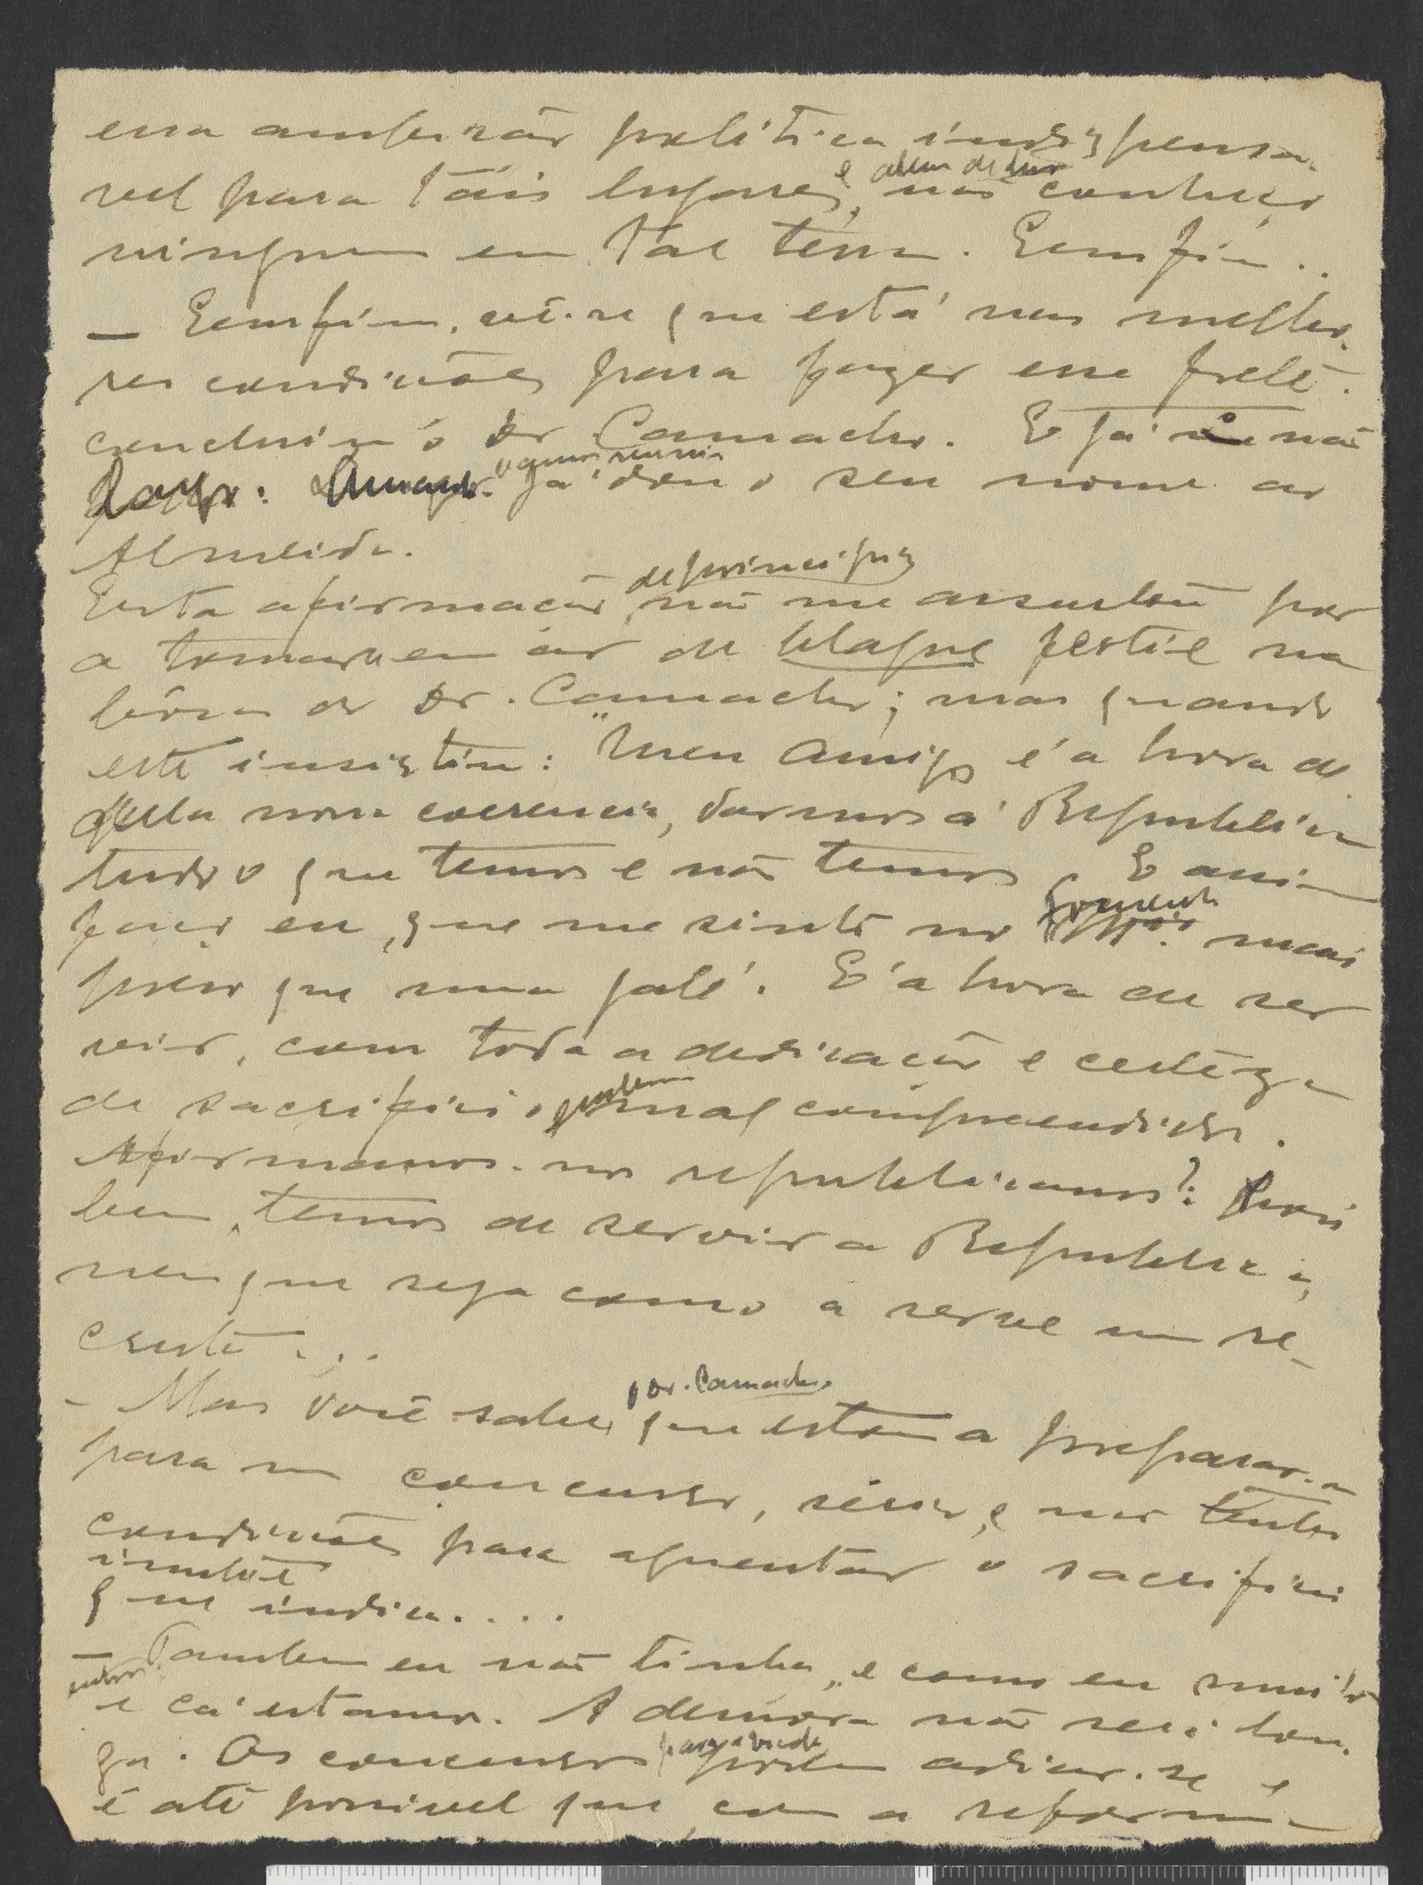 essa ambição politica indispensa-
vel para tais lugares, e alem de tudo não conheço
ninguem em tal terra. Emfim..
— Emfim, vê-se que está nas melho-
res condições para fazer esse frete.
concluiu o Dr. Camacho. E já não
já dou o seu nome ao
Almeida.
Esta afirmação, de principio, não me assustou por
a tomar em ar de blague fertil na
bôca do Dr. Camacho; mas quando
este insistiu: "Meu amigo é a hora de
pela nossa coerencia, darmos á Republica
tudo o que temos e não temos. E assim
faço eu, que me sinto no fomento mais
preso que uma galé. É a hora de ser-
vir, com toda a dedicação e certeza
de sacrificio mal compreendido.
Afirmamo-nos republicanos? Pois
bem, temos de servir a Republica,
nem que seja como a serve um re-
cruta...
- Mas você sabe, Dr. Camacho, que estou a preparar-me
para um concurso, sério, e não tenho
condições para aguentar o sacrificio
que indica....
— Tambem eu não tinha, e como eu muitos outros
e cá estamos. A demora não será lon-
ga. Os concursos podem adiar-se e
é até possivel que, com a reforma